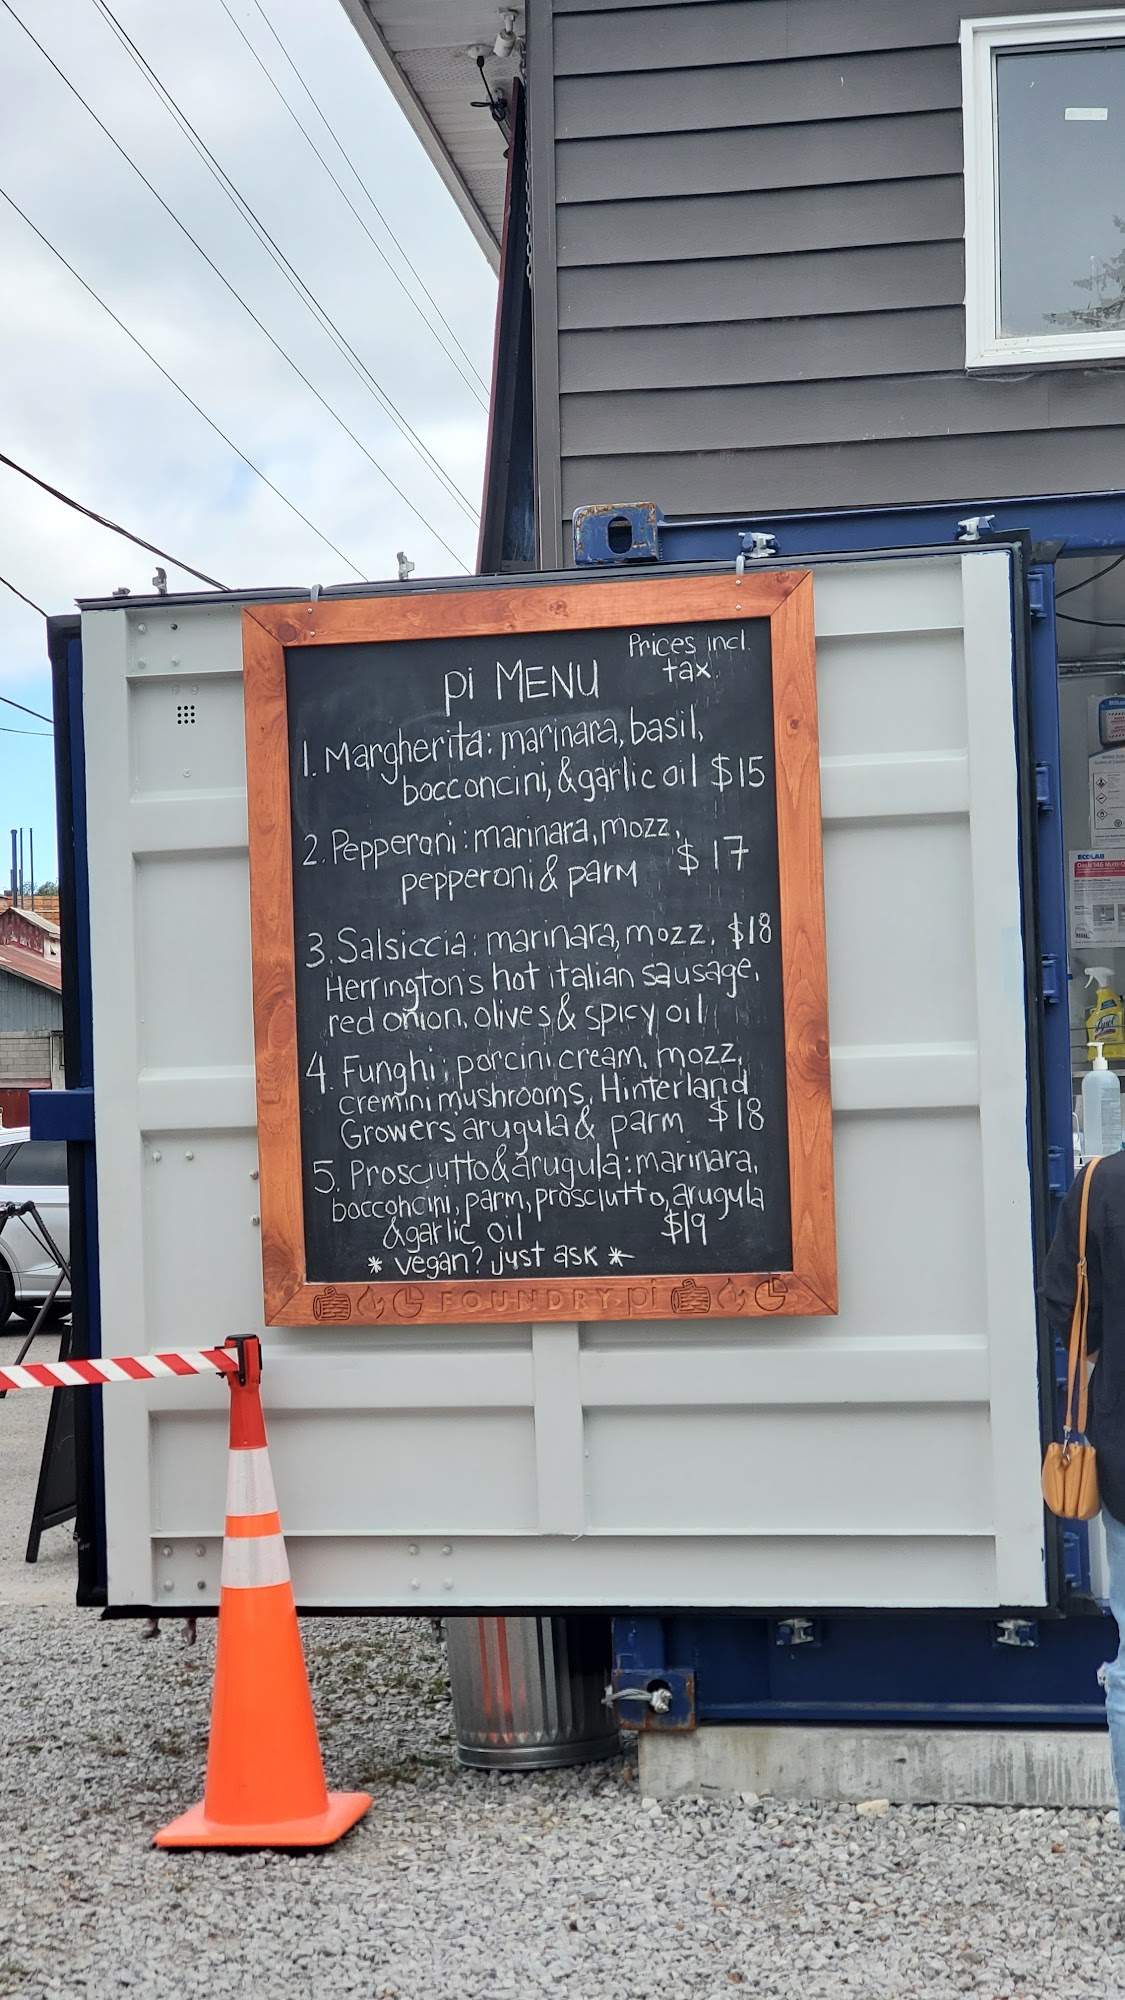 Prices incl.
tax.
pi MENU
1. Margherita: marinara, basil,
bocconcini, & garlic oil $15
2. Pepperoni: marinara, mozz,
pepperoni & parm $17
3. Salsiccia: marinara, mozz, $18
Herrington's hot italian sausage,
red onion, olives & spicy oil
4. Funghi: porcini cream, mozz,
cremini mushrooms, Hinterland
Growers arugula & parm $18
5. Prosciutto & arugula: marinara,
bocconcini, parm, prosciutto, arugula
& garlic oil $19
* vegan? just ask *
FOUNDRY pi
ECOLAB